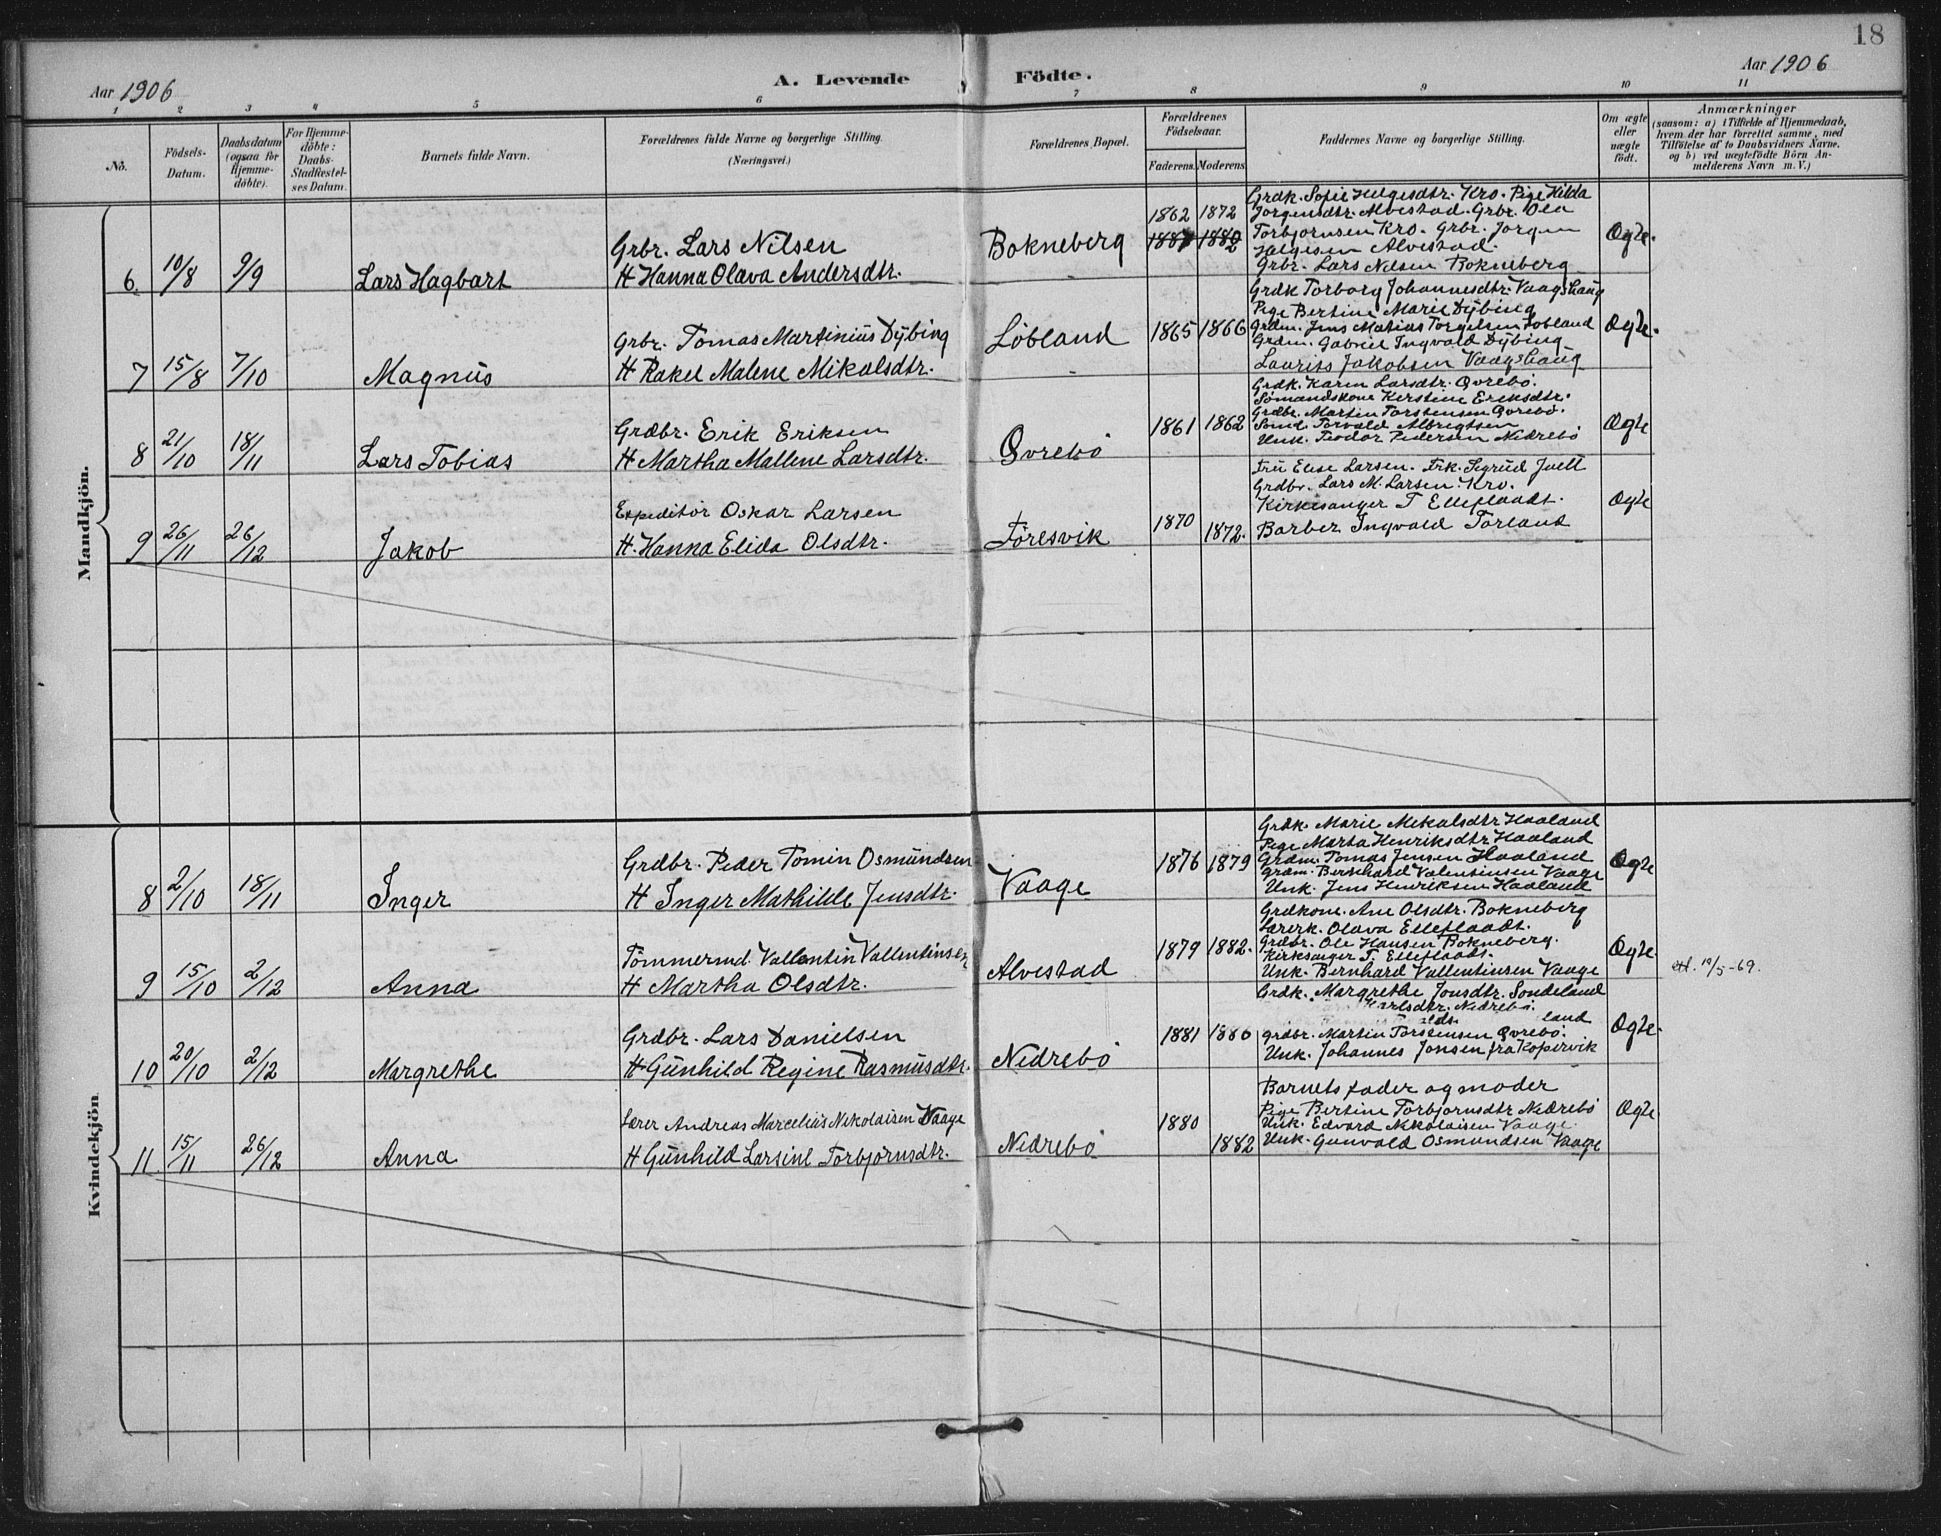 18
Aar 1906
A. Levende Födte.
Aar 1906
1 2 3 4 5 6 7 8 9 10 11
No.
Födsels-Datum.
Daabsdatum (ogsaa for Hjemme-döbte).
For Hjemme-döbte: Daabs-Stadfæstel-ses Datum.
Barnets fulde Navn.
Forældrenes fulde Navne og borgerlige Stilling.
(Næringsvei.)
Forældrenes Bopæl.
Forældrenes Födselsaar.
Faderens. Moderens.
Faddernes Navne og borgerlige Stilling.
Om ægte eller uægte födt.
Anmærkninger
(saasom: a) i Tilfælde af Hjemmedaab,
hvem der har forrettet samme, med
Tilföielse af to Daabsvidners Navne.
og b) ved uægtefödte Börn An-
melderens Navn m. V.)
Mandkjön.
6 10/8 9/9 Lars Hagbart
Grbr. Lars Nilsen
H Hanna Olava Andersdtr.
Bokneberg
1862 1872
Grdk. Sofie Helgesdtr. Kro. Pige Hilda
Jorgensdtr. Alvestad. Grbr. Ola
Torbjornsen Kro. Grbr. Jorgen
Helgesen Alvestad.
Grbr. Lars Nilsen Bokneberg
Ægte.
7 15/8 7/10 Magnus
Grbr. Tomas Martinius Dybing
H Rakel Malene Mikalsdtr.
Løbland
1865 1866
Grdk Torborg Johannesdtr. Vaagshaug
Pige Bertine Marie Dybing
Grdm. Jens Matias Torgelsen Lobland
Grdm. Gabriel Ingvald Dybing
Laurits Jakobsen Vaagshaug
Ægte.
8 21/10 18/11 Lars Tobias
Grdbr. Erik Eriksen
H Martha Mallene Larsdtr.
Øvrebø
1861 1862
Grdk. Karen Larsdtr. Øvrebö.
Sömandskone Kerstine Eriksdtr.
Grdbr. Martin Torstensen Øvrebö.
Sömd. Torvald Albregtsen
Unk. Teodor Pedersen Nedrebö
Ægte
9 26/11 26/12 Jakob
Expeditör Oskar Larsen
H. Hanna Elida Olsdtr.
Føresvik
1870 1872.
Fru Elise Larsen. Frk. Sigrud Juell
Grdbr. Lars M. Larsen Kro.
Kirkesanger T Elleflaadt.
Barber Ingvald Torland
Ægte
Kvindekjön
8 2/10 18/11 Inger
Grdbr. Peder Tomin Osmundsen
H Inger Mathilde Jensdtr.
Vaage
1876 1879
Grdk. Marie Mikalsdtr Haaland
Pige Marta Henriksdtr Haaland
Grdm. Tomas Jensen Haaland
Grdm. Bernhard Valentinsen Vaage
Unk. Jens Henriksen Haaland
Ægte
9 15/10 2/12 Anna
Tömmermd. Vallentin Vallentinsen
H Martha Olsdtr.
Alvestad
1879 1882.
Grdkone. Ane Olsdtr. Bokneberg
Lærerk. Olava Elleflaadt.
Grdbr. Ole Hansen Bokneberg.
Kirksanger T. Elleflaadt.
Unk. Bernhard Vallentinsen Vaage
Ægte.
att. 19/5-69.
10 20/10 2/12 Margrethe
Grdbr. Lars Danielsen
H Gunhild Regine Rasmusdtr.
Nedrebö
1881 1880
Grdk. Margrethe Jonsdtr. Sondeland
Karlsdtr. Nedrebö.
land
Grdbr. Martin Torstensen Øvrebö.
Unk. Johannes Jonsen fra Kopervik
Ægte.
11 15/11 26/12 Anna
Lærer Andreas Marcelius Nikolaisen Vaage
H Gunhild Larsine Torbjornsdtr.
Nedrebö
1880 1882
Barnets fader og moder
Pige Bertine Torbjornsdtr Nedrebö
Unk. Edvard Nikolaisen Vaage.
Unk. Gunvald Osmundsen Vaage
Ægte